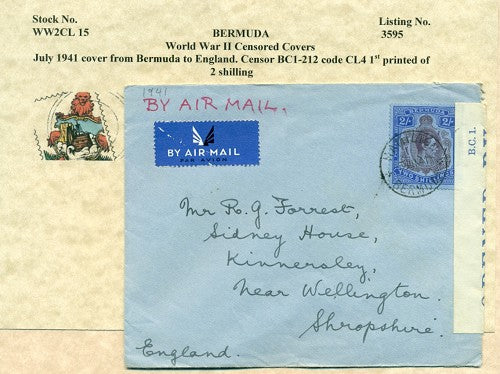 Stock No.
WW2CL 15
BERMUDA
Listing No.
3595
World War II Censored Covers
July 1941 cover from Bermuda to England. Censor BC1-212 code CL4 1st printed of
2 shilling
1941
BY AIR MAIL.
BY AIR MAIL
PAR AVION
BERMUDA
2/- 2/-
TWO SHILLINGS
B.C. 1.
OPENED BY
Mr R. G. Forrest,
Sidney House,
Kinnersley,
Near Wellington.
Shropshire.
England.